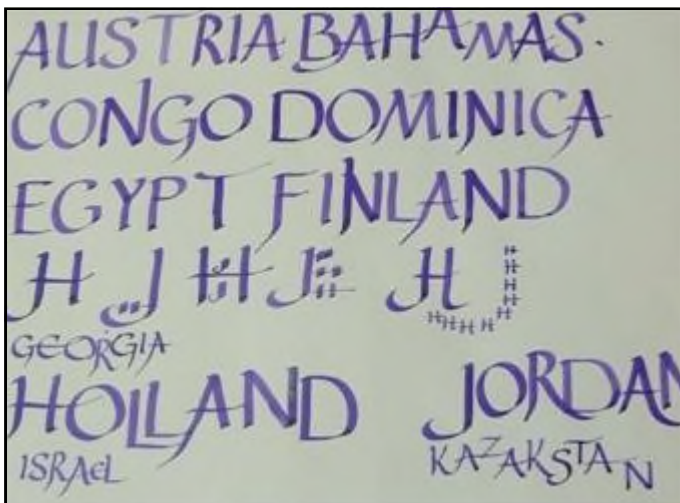 AUSTRIA BAHAMAS.
CONGO DOMINICA
EGYPT FINLAND
H J H J H
H H H H H H H H H
GEORGIA
HOLLAND JORDAN
ISRAeL KAZAKSTAN